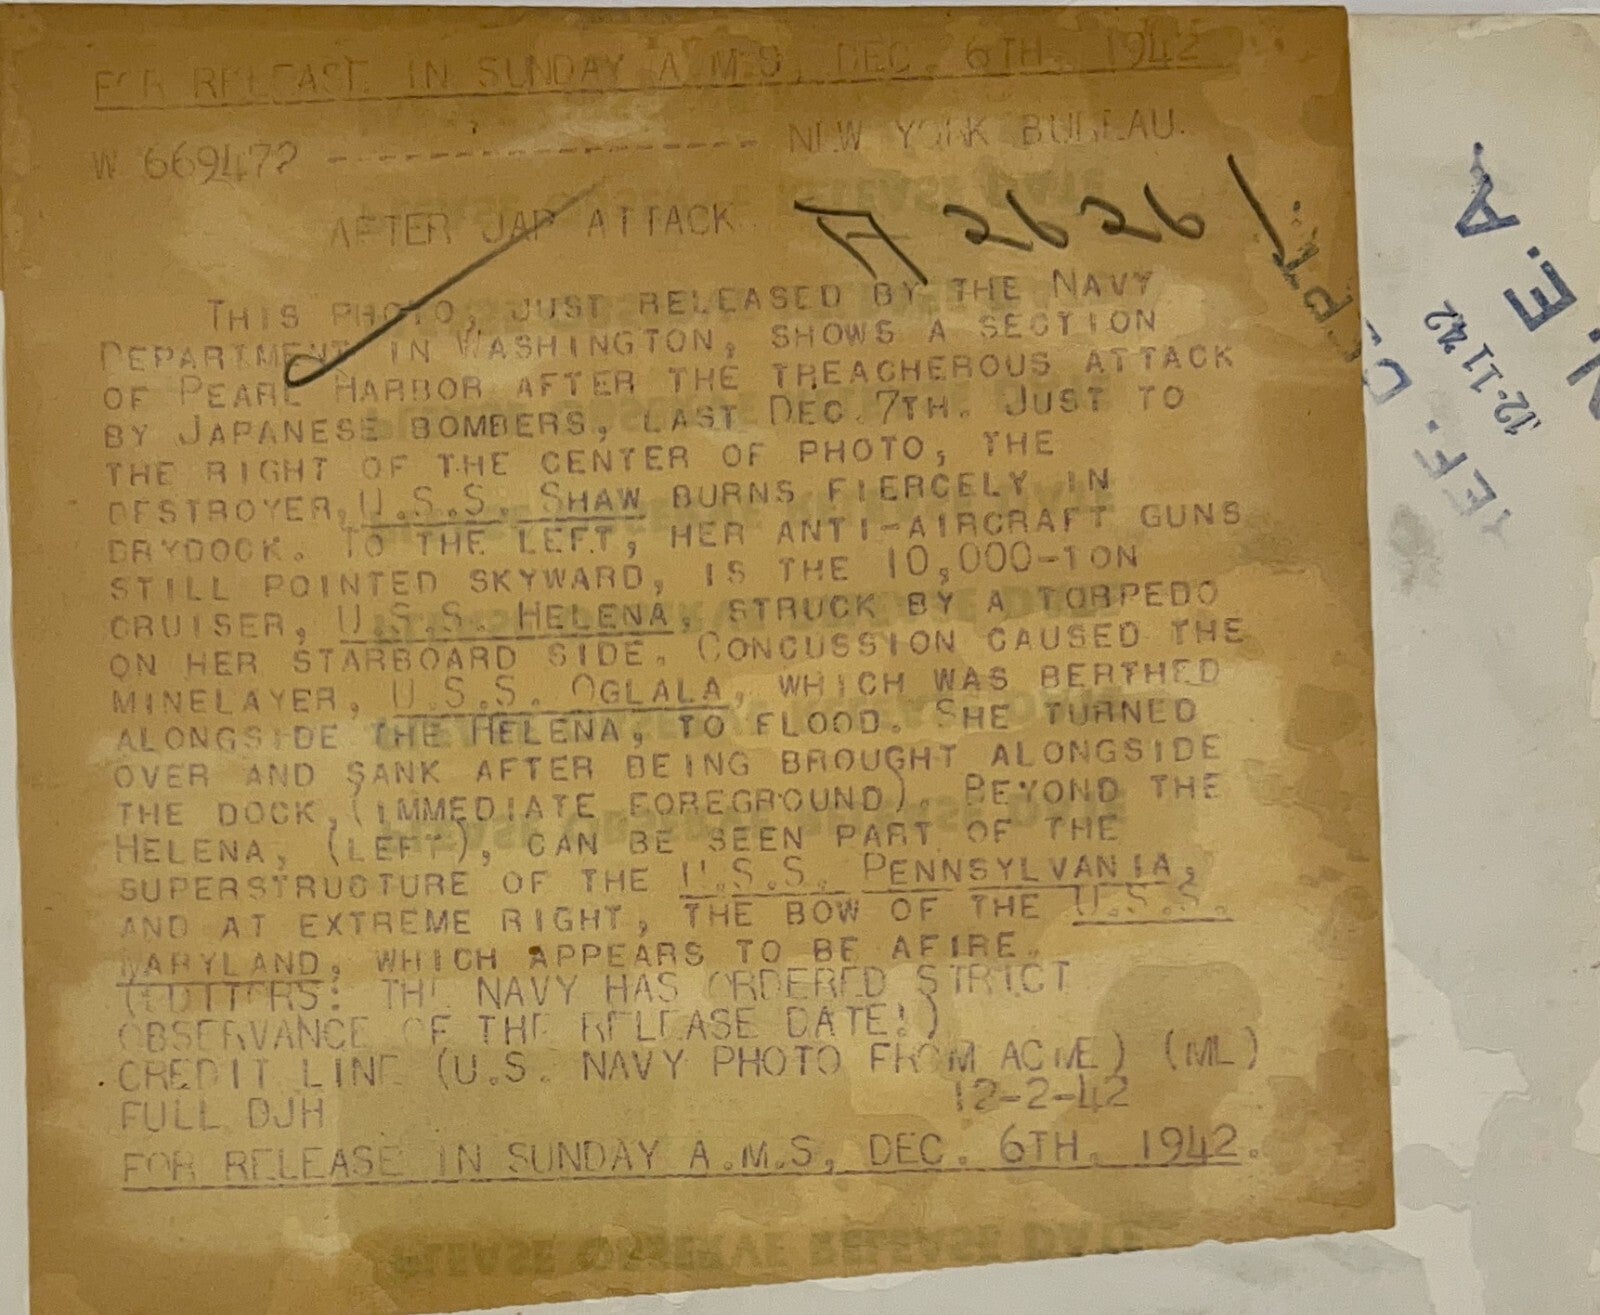 FOR RELEASE IN SUNDAY A.M.S, DEC. 6TH, 1942
W 669472 -------------------- NEW YORK BUREAU.
AFTER JAP ATTACK
A 2626
THIS PHOTO, JUST RELEASED BY THE NAVY
DEPARTMENT IN WASHINGTON, SHOWS A SECTION
OF PEARL HARBOR AFTER THE TREACHEROUS ATTACK
BY JAPANESE BOMBERS, LAST DEC. 7TH. JUST TO
THE RIGHT OF THE CENTER OF PHOTO, THE
DESTROYER, U.S.S. SHAW BURNS FIERCELY IN
DRYDOCK. TO THE LEFT, HER ANTI-AIRCRAFT GUNS
STILL POINTED SKYWARD, IS THE 10,000-TON
CRUISER, U.S.S. HELENA, STRUCK BY A TORPEDO
ON HER STARBOARD SIDE. CONCUSSION CAUSED THE
MINELAYER, U.S.S. OGLALA, WHICH WAS BERTHED
ALONGSIDE THE HELENA, TO FLOOD. SHE TURNED
OVER AND SANK AFTER BEING BROUGHT ALONGSIDE
THE DOCK, (IMMEDIATE FOREGROUND). BEYOND THE
HELENA, (LEFT), CAN BE SEEN PART OF THE
SUPERSTRUCTURE OF THE U.S.S. PENNSYLVANIA,
AND AT EXTREME RIGHT, THE BOW OF THE U.S.S.
MARYLAND, WHICH APPEARS TO BE AFIRE.
(EDITORS: THE NAVY HAS ORDERED STRICT
OBSERVANCE OF THE RELEASE DATE!)
CREDIT LINE (U.S. NAVY PHOTO FROM ACME) (ML)
FULL DJH 12-2-42
FOR RELEASE IN SUNDAY A.M.S, DEC. 6TH, 1942.
PLEASE OBSERVE RELEASE DATE
N.E.A.
12-11-42